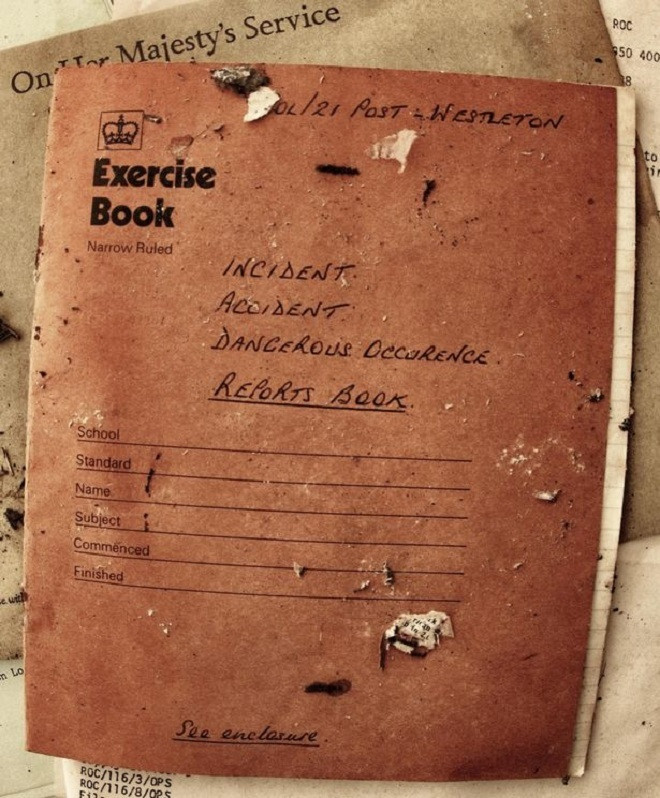 On Her Majesty's Service
ROC
950 400
OL/21 POST - WESTLETON
Exercise
Book
Narrow Ruled
INCIDENT.
ACCIDENT.
DANGEROUS OCCURENCE.
REPORTS BOOK.
School
Standard
Name
Subject
Commenced
Finished
See enclosure.
ROC/116/3/OPS
ROC/116/8/OPS